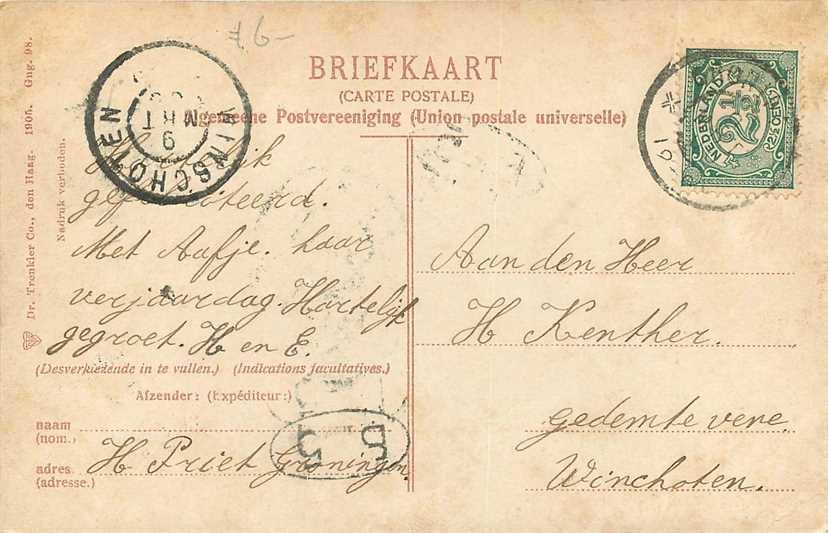 f 6-
BRIEFKAART
(CARTE POSTALE)
Algemeene Postvereeniging (Union postale universelle)
WINSCHOTEN
NEDERLAND
2½ CENT 2½
Dr. Trenkler Co., den Haag. 1905. Gng. 98.
Nadruk verboden.
gefeliciteerd.
Met Aafje. haar
verjaardag. Hartelijk
gegroet. H en E.
(Desverkiezende in te vullen.) (Indications facultatives.)
Afzender: (Expéditeur:)
naam
(nom.)
H Priet Groningen
adres
(adresse.)
Aan den Heer
H Kenther.
Gedemte vene
Winchoten.